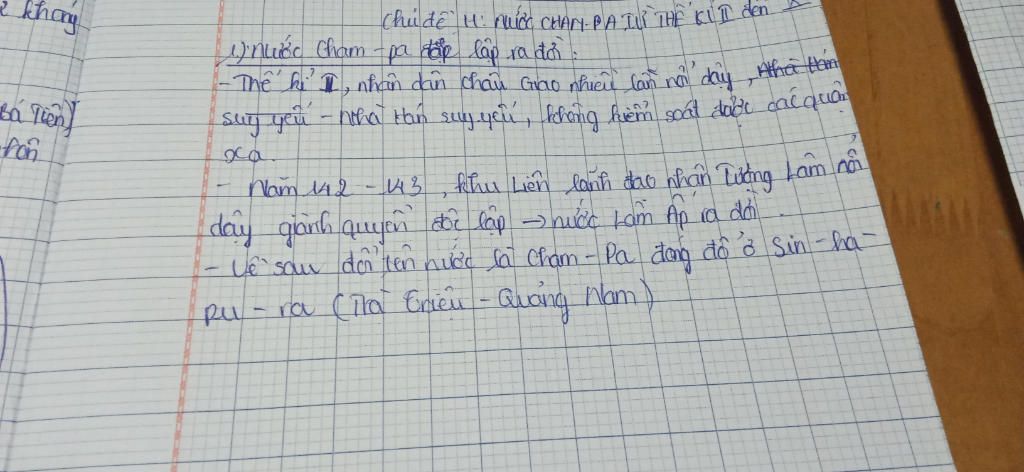 không
Chủ đề 11: nước CHAM-PA TỪ THẾ KỈ II đến X
1) nước Cham-pa độc lập ra đời:
Bá Tiên)
- Thế kỉ II, nhân dân châu Giao nhiều lần nổi dậy, nhà Hán
suy yếu - nhà Hán suy yếu, không kiểm soát được các quận
xa.
- Năm 192 - 193, Khu Liên lãnh đạo nhân Tượng Lâm nổi
dậy giành quyền độc lập → nước Lâm Ấp ra đời.
- Về sau đổi tên nước là Cham-Pa đóng đô ở Sin-ha-
pu-ra (Trà Kiệu - Quảng Nam)